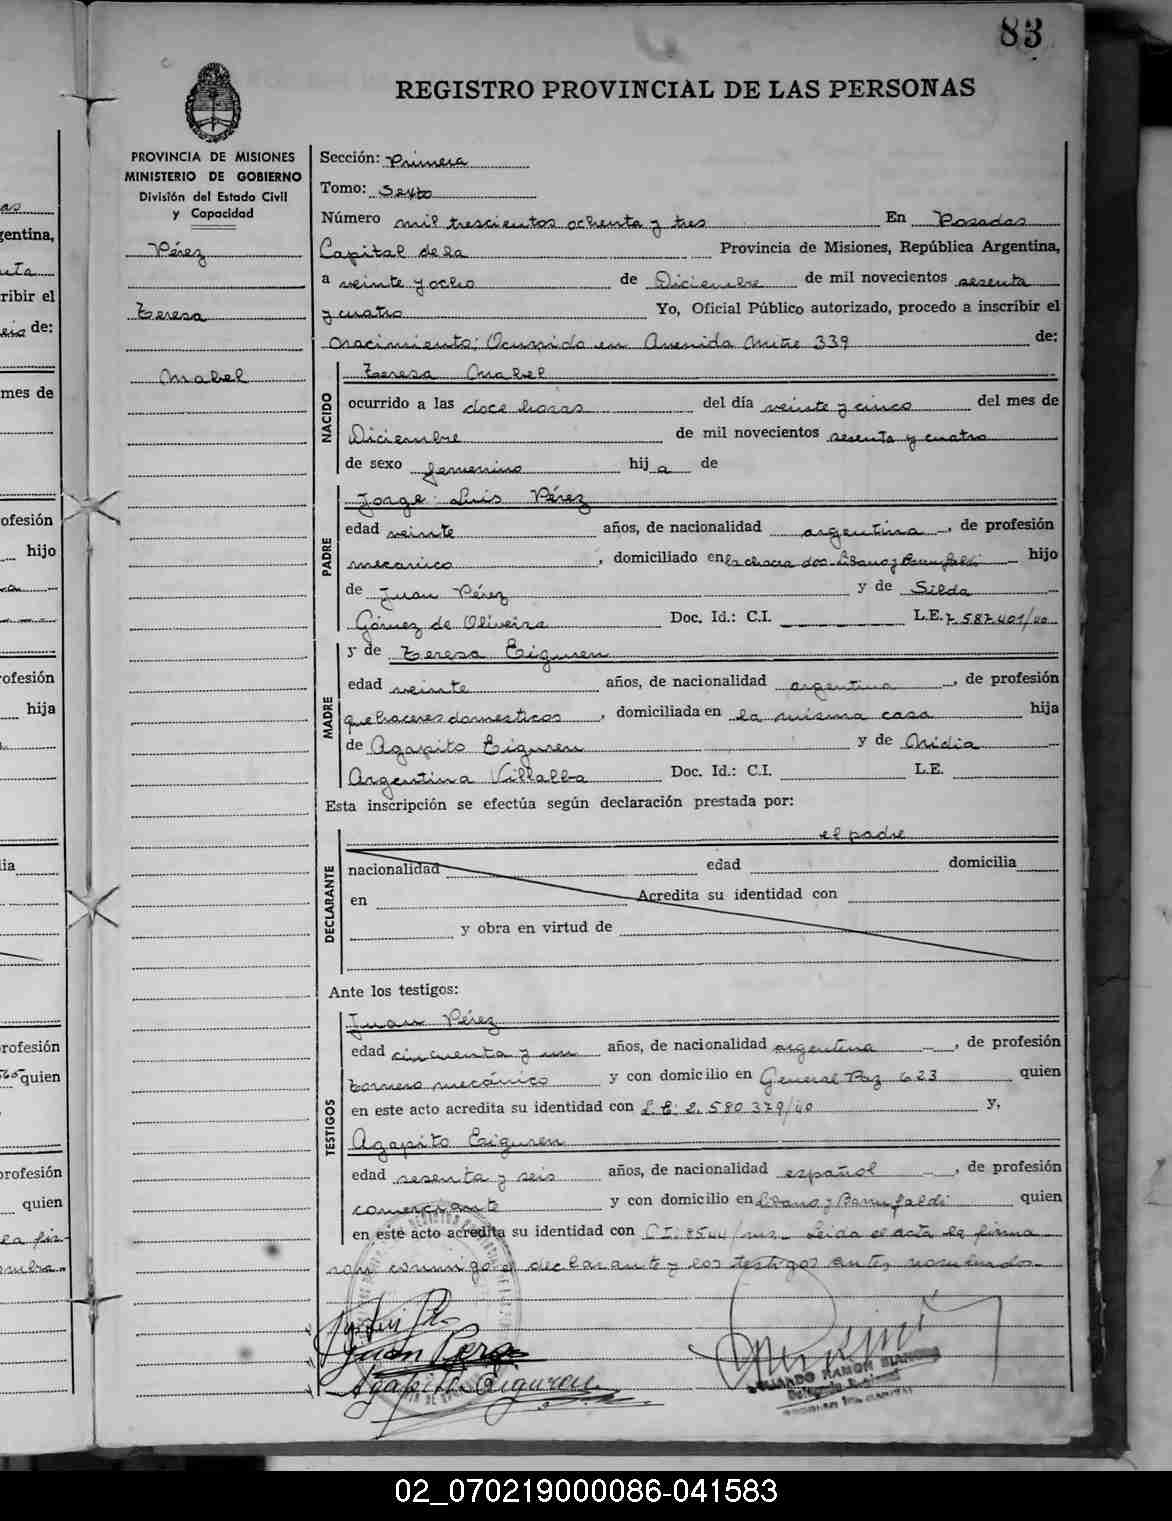 83
REGISTRO PROVINCIAL DE LAS PERSONAS
PROVINCIA DE MISIONES
MINISTERIO DE GOBIERNO
División del Estado Civil
y Capacidad
Pérez
Teresa
Mabel
Sección: Primera
Tomo: Sexto
Número mil trescientos ochenta y tres En Posadas
Capital de la Provincia de Misiones, República Argentina,
a veinte y ocho de Diciembre de mil novecientos sesenta
y cuatro Yo, Oficial Público autorizado, procedo a inscribir el
nacimiento; Ocurrido en Avenida Mitre 339 de:
NACIDO
Teresa Mabel
ocurrido a las doce horas del día veinte y cinco del mes de
Diciembre de mil novecientos sesenta y cuatro
de sexo femenino hija de
PADRE
Jorge Luis Pérez
edad veinte años, de nacionalidad argentina, de profesión
mecánico, domiciliado en la chacra dos hijo
de Juan Pérez y de Silda
Gómez de Oliveira Doc. Id.: C.I. L.E. 7.587.401/40
MADRE
y de Teresa Eiguren
edad veinte años, de nacionalidad argentina, de profesión
quehaceres domesticos, domiciliada en la misma casa hija
de Agapito Eiguren y de Nidia
Argentina Villalba Doc. Id.: C.I. L.E.
Esta inscripción se efectúa según declaración prestada por:
el padre
DECLARANTE
nacionalidad edad domicilia
en Acredita su identidad con
y obra en virtud de
Ante los testigos:
TESTIGOS
Juan Pérez
edad cincuenta y un años, de nacionalidad argentina, de profesión
tornero mecánico y con domicilio en General Paz 623 quien
en este acto acredita su identidad con L.E. 2.580.379/40 y,
Agapito Eiguren
edad sesenta y seis años, de nacionalidad español, de profesión
comerciante y con domicilio en quien
en este acto acredita su identidad con C.I. 8544 Leida el acta la firma
con conmigo el declarante y los testigos antes nombrados
Juan Perez
Agapito Eiguren
RAMON
02_070219000086-041583